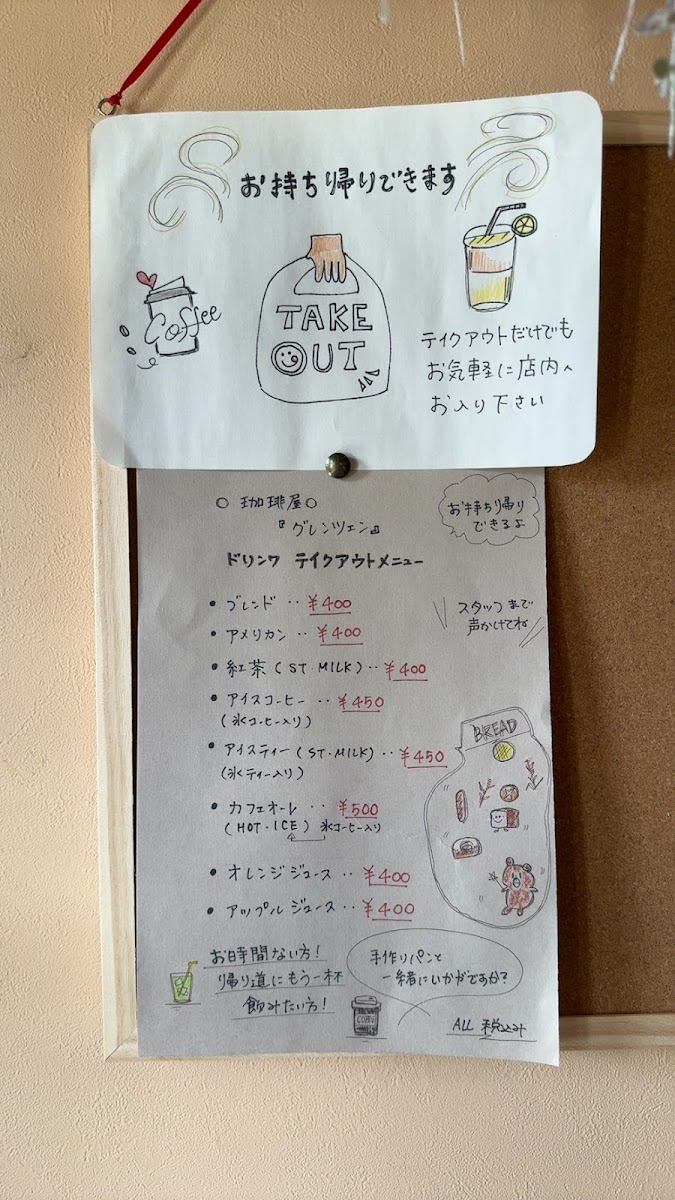 お持ち帰りできます
Coffee
TAKE
OUT
テイクアウトだけでも
お気軽に店内へ
お入り下さい
○ 珈琲屋○
『グレンツェン』
お持ち帰り
できるよ
ドリンク テイクアウトメニュー
スタッフまで
声かけてね
• ブレンド ‥ ¥400
• アメリカン ‥ ¥400
• 紅茶 (ST・MILK) ‥ ¥400
• アイスコーヒー ‥ ¥450
(氷コーヒー入り)
• アイスティー (ST・MILK) ‥ ¥450
(氷ティー入り)
• カフェオーレ ‥ ¥500
(HOT・ICE) 氷コーヒー入り
• オレンジジュース ‥ ¥400
• アップルジュース ‥ ¥400
BREAD
お時間ない方!
帰り道にもう一杯
飲みたい方!
手作りパンと
一緒にいかがですか?
ALL 税込み